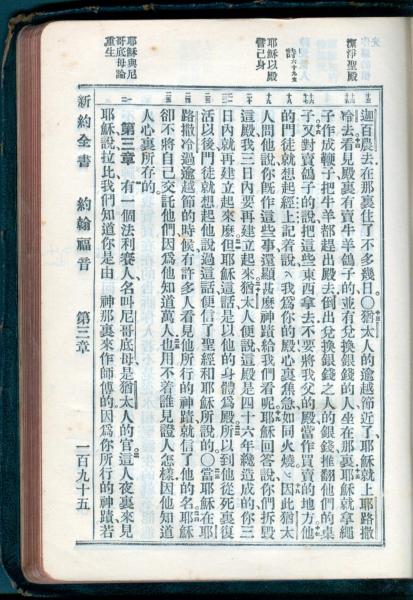 潔淨聖殿
耶穌以殿
譬己身
耶穌與尼
哥底母論
重生
迦百農去在那裏住了不多幾日〇猶太人的逾越節近了耶穌就上耶路撒
冷去看見殿裏有賣牛羊鴿子的並有兌換銀錢的人坐在那裏耶穌就拿繩
子作成鞭子把牛羊都趕出殿去倒出兌換銀錢之人的銀錢推翻他們的桌
子又對賣鴿子的說把這些東西拿去不要將我父的殿當作買賣的地方他
的門徒就想起經上記着說我爲你的殿心裏焦急如同火燒因此猶太
人問他說你旣作這些事還顯甚麽神蹟給我們看呢耶穌回答說你們拆毀
這殿我三日內要再建立起來猶太人便說這殿是四十六年纔造成的你三
日內就再建立起來麽但耶穌這話是以他的身體爲殿所以到他從死裏復
活以後門徒就想起他說過這話便信了聖經和耶穌所說的〇當耶穌在耶
路撒冷過逾越節的時候有許多人看見他所行的神蹟就信了他的名耶穌
卻不將自己交託他們因爲他知道萬人也用不着誰見證人怎樣因他知道
人心裏所存的
第三章 有一個法利賽人名叫尼哥底母是猶太人的官這人夜裏來見
耶穌說拉比我們知道你是由 神那裏來作師傅的因爲你所行的神蹟若
新約全書 約翰福音 第三章 一百九十五